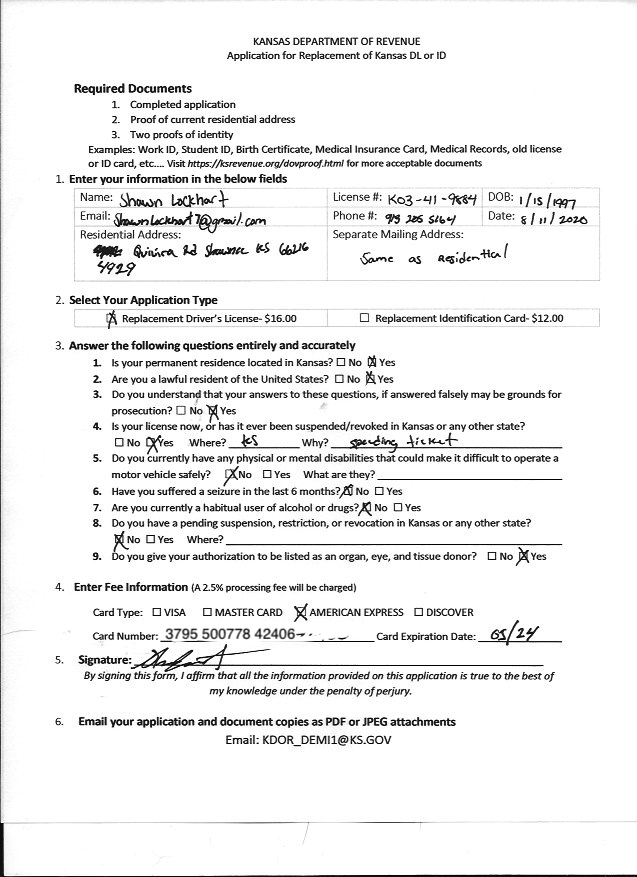 KANSAS DEPARTMENT OF REVENUE
Application for Replacement of Kansas DL or ID
Required Documents
1. Completed application
2. Proof of current residential address
3. Two proofs of identity
Examples: Work ID, Student ID, Birth Certificate, Medical Insurance Card, Medical Records, old license
or ID card, etc.... Visit https://ksrevenue.org/dovproof.html for more acceptable documents
1. Enter your information in the below fields
Name: Shawn Lockhart License #: K03-41-9884 DOB: 1/15/1997
Email: ShawnLockhart7@gmail.com Phone #: 913 205 5164 Date: 8/11/2020
Residential Address: Separate Mailing Address:
Quivira Rd Shawnee KS 66216 Same as Residential
4929
2. Select Your Application Type
☒ Replacement Driver's License- $16.00 ☐ Replacement Identification Card- $12.00
3. Answer the following questions entirely and accurately
1. Is your permanent residence located in Kansas? ☐ No ☒ Yes
2. Are you a lawful resident of the United States? ☐ No ☒ Yes
3. Do you understand that your answers to these questions, if answered falsely may be grounds for
prosecution? ☐ No ☒ Yes
4. Is your license now, or has it ever been suspended/revoked in Kansas or any other state?
☐ No ☒ Yes Where? KS Why? speeding ticket
5. Do you currently have any physical or mental disabilities that could make it difficult to operate a
motor vehicle safely? ☒ No ☐ Yes What are they?
6. Have you suffered a seizure in the last 6 months? ☒ No ☐ Yes
7. Are you currently a habitual user of alcohol or drugs? ☒ No ☐ Yes
8. Do you have a pending suspension, restriction, or revocation in Kansas or any other state?
☒ No ☐ Yes Where?
9. Do you give your authorization to be listed as an organ, eye, and tissue donor? ☐ No ☒ Yes
4. Enter Fee Information (A 2.5% processing fee will be charged)
Card Type: ☐ VISA ☐ MASTER CARD ☒ AMERICAN EXPRESS ☐ DISCOVER
Card Number: 3795 500778 42406 Card Expiration Date: 05/24
5. Signature:
By signing this form, I affirm that all the information provided on this application is true to the best of
my knowledge under the penalty of perjury.
6. Email your application and document copies as PDF or JPEG attachments
Email: KDOR_DEMI1@KS.GOV